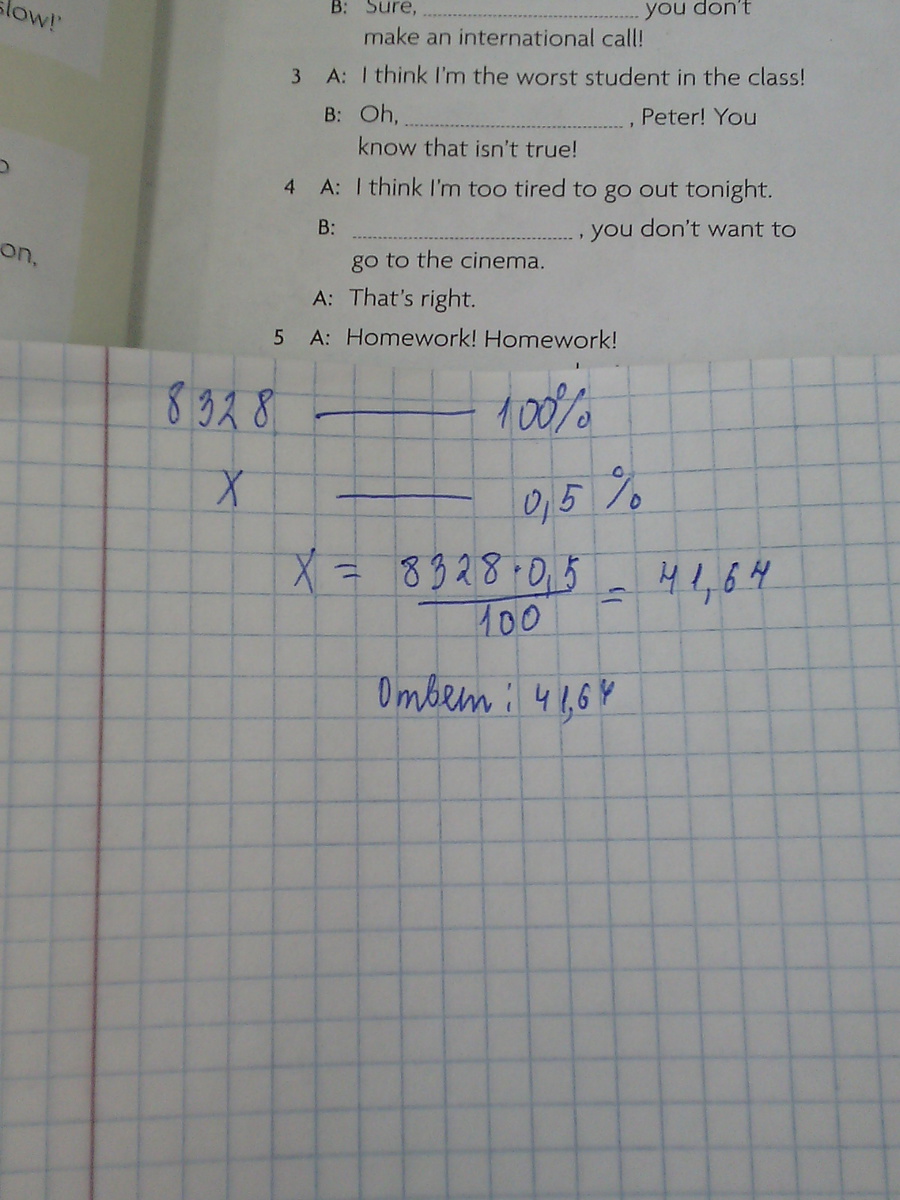 slow!'
on,
B: Sure, you don't
make an international call!
3 A: I think I'm the worst student in the class!
B: Oh, , Peter! You
know that isn't true!
4 A: I think I'm too tired to go out tonight.
B: , you don't want to
go to the cinema.
A: That's right.
5 A: Homework! Homework!
8328 — 100%
X — 0,5 %
X = 8328·0,5 / 100 = 41,64
Ответ: 41,64